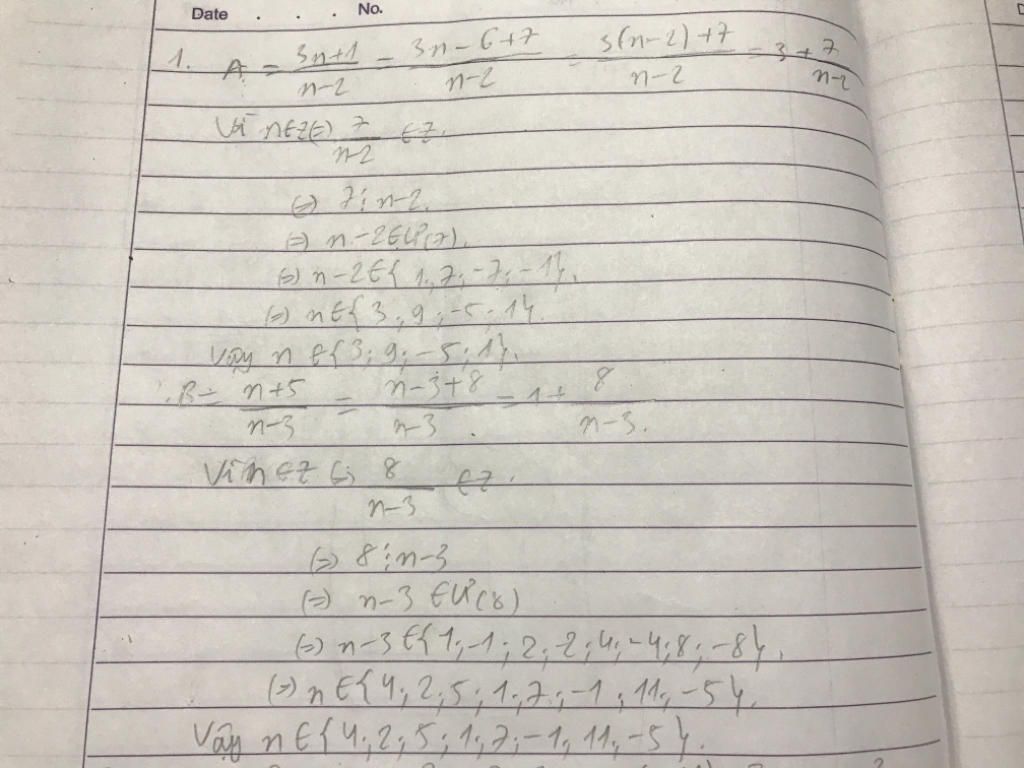 Date . . . No.
1. A = 3n+1/n-2 = 3n-6+7/n-2 = 3(n-2)+7/n-2 = 3 + 7/n-2
Vì n∈Z(=) 7/n-2 ∈Z.
(=) 7⋮n-2.
(=) n-2∈Ư(7).
(=) n-2∈{ 1; 7; -7; -1}.
(=) n∈{ 3; 9; -5; 1}.
Vậy n ∈{3; 9; -5; 1}.
B = n+5/n-3 = n-3+8/n-3 = 1 + 8/n-3.
Vì n ∈Z (=) 8/n-3 ∈Z.
(=) 8⋮n-3
(=) n-3 ∈Ư(8)
(=) n-3 ∈{1; -1; 2; -2; 4; -4; 8; -8}.
(=) n ∈{4; 2; 5; 1; 7; -1; 11; -5}.
Vậy n ∈{4; 2; 5; 1; 7; -1; 11; -5}.